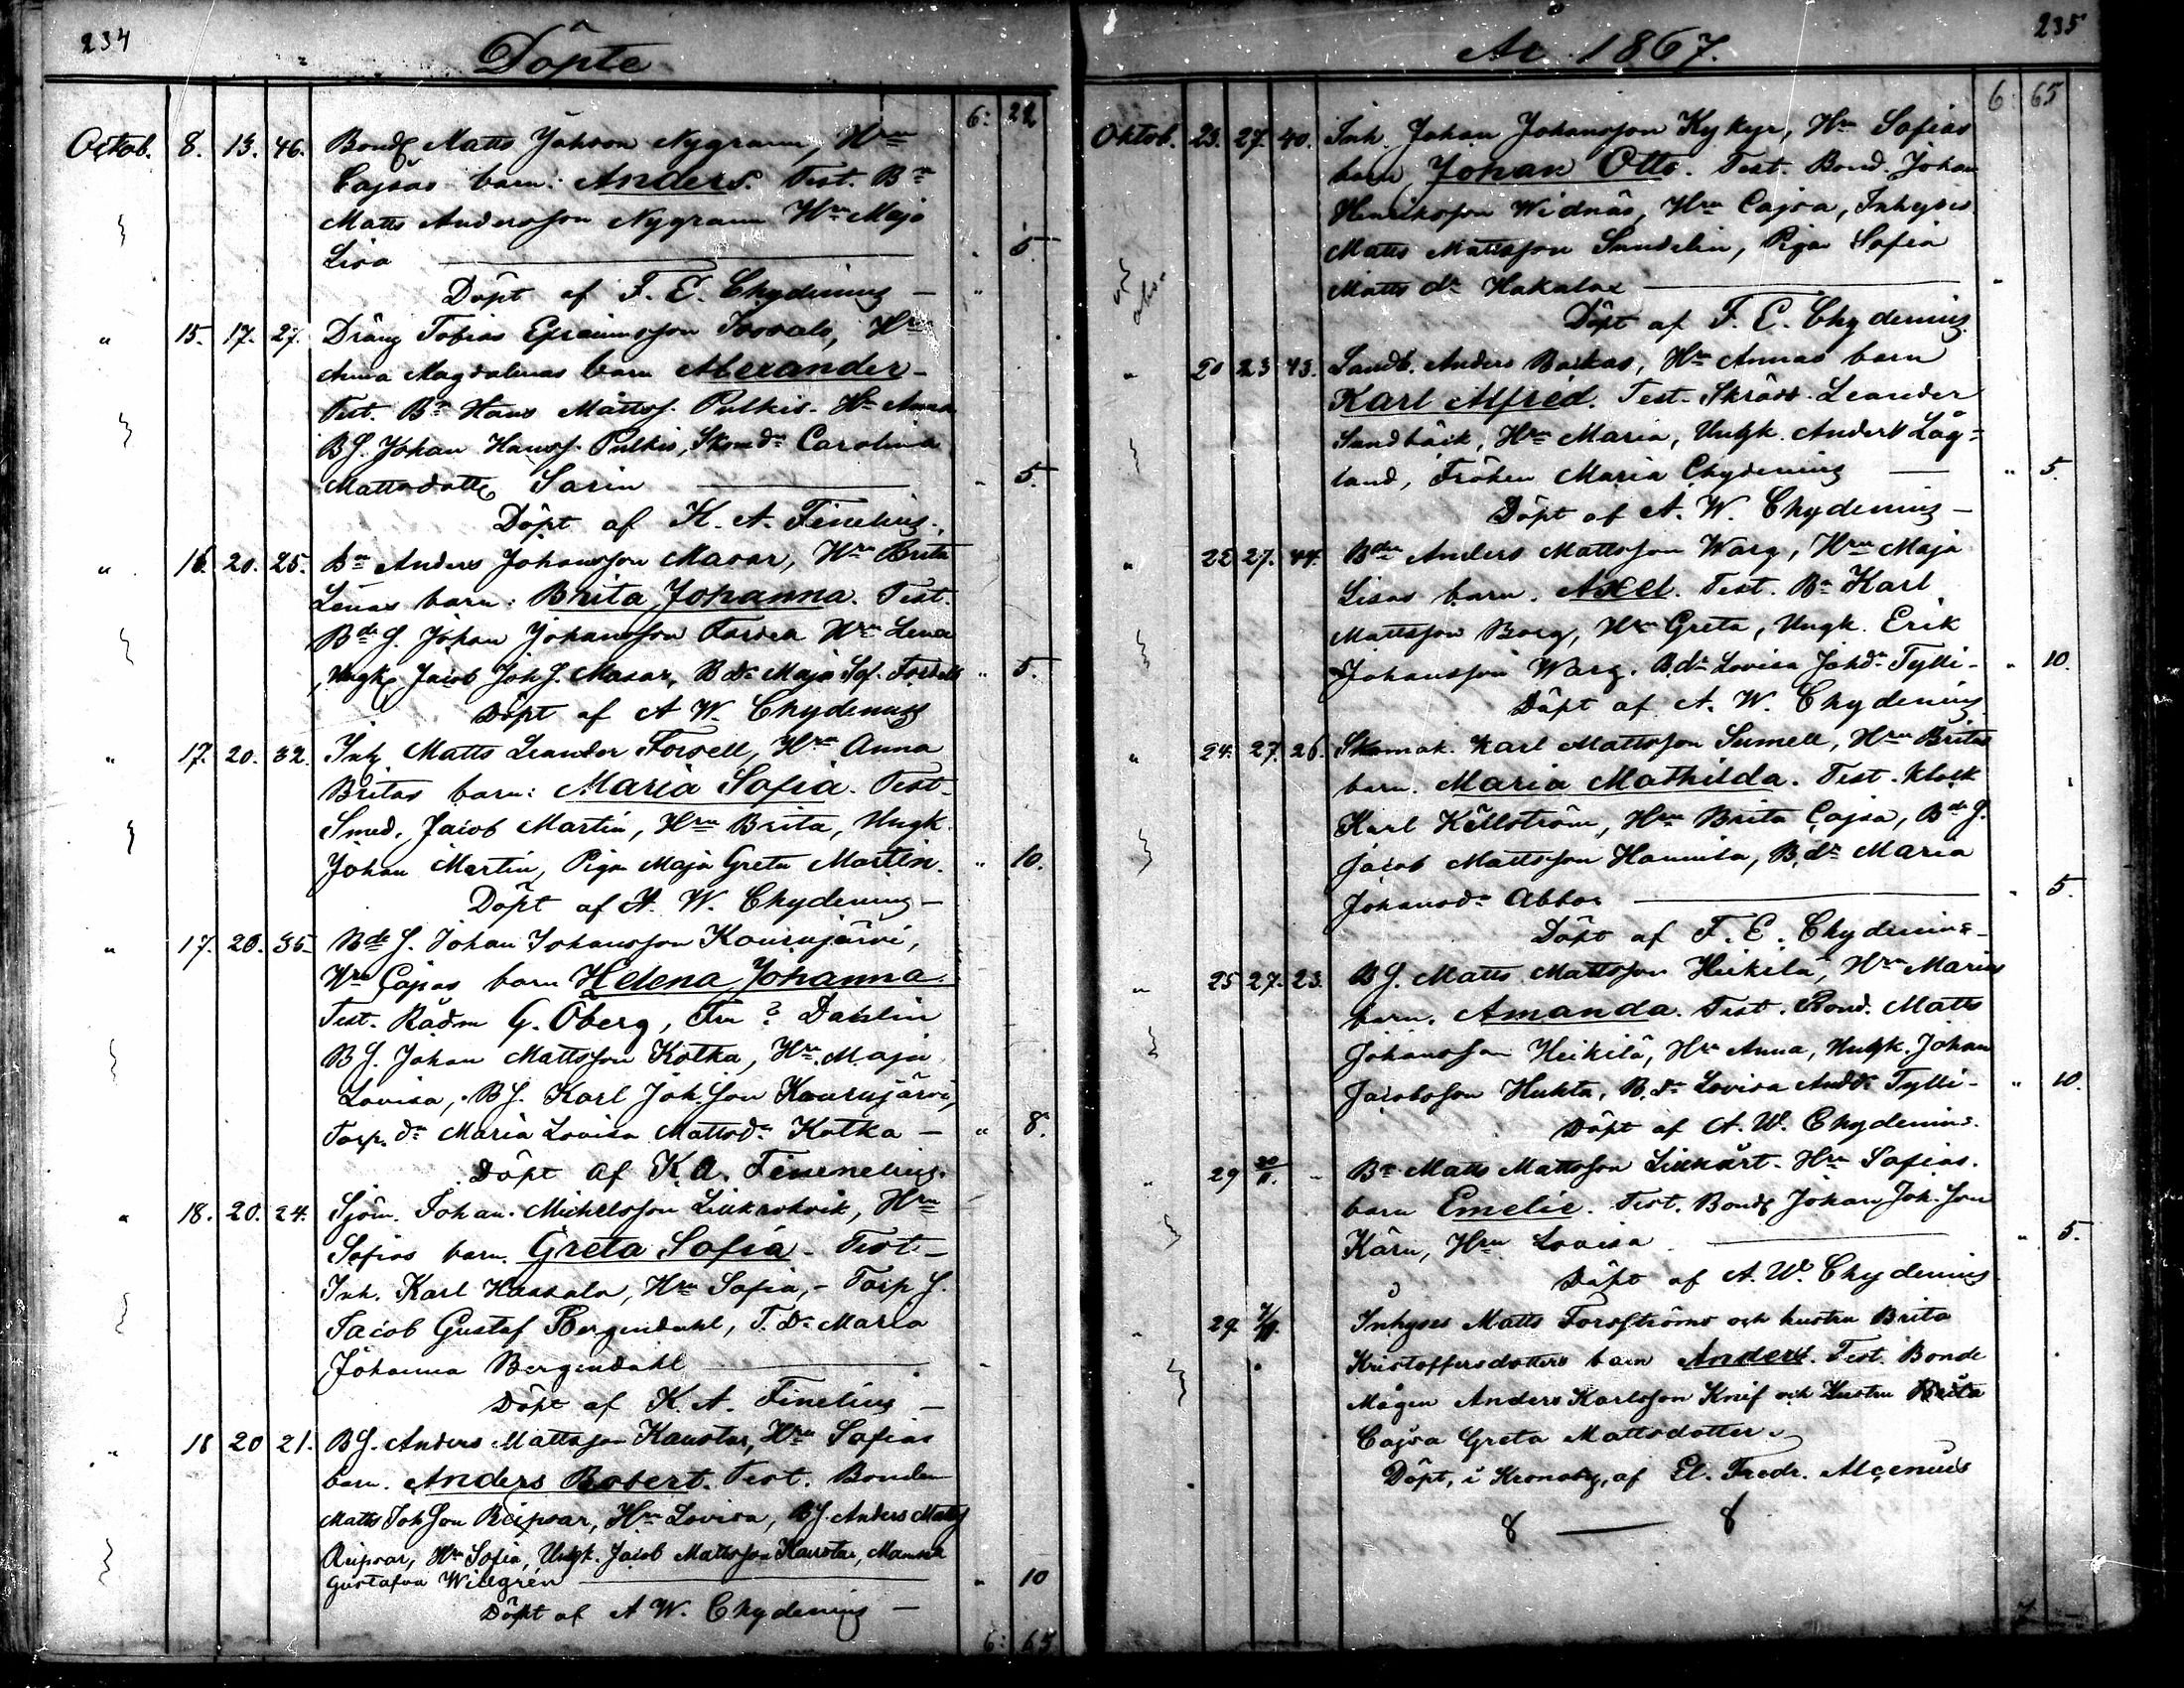 234
Döpte
6: 22
Octob. 8. 13. 46. Bond Matts Johsson Nygrann, Hru
Cajsas barn: Anders. Test. Bn
Matts Andersson Nygrann Hru Maja
Lisa — " 5.
Döpt af F. E. Chydenius —
" 15. 17. 27. Dräng Tobias Epraimsson, Hru
Anna Magdalenas barn Alexander —
Test. Bn Hans Mattss. Pulkis. Hu Anna
BS. Johan Hanss. Pulkis, Carolina
Mattsdotter Sarin — " 5.
Döpt af K. A. Finelius.
" 16. 20. 25. Bn Anders Johansson Masar, Hru Brita
Lenas barn: Brita Johanna. Test.
Bde S. Johan Johansson Hru Lena
Ungk Jacob Joh S. Masar, B dr Maja Sof. " 5.
Döpt af A W. Chydenius
" 17. 20. 32. Inh Matts Leander Forsell, Hru Anna
Britas barn: Maria Sofia. Test.
Smed. Jacob Martin, Hru Brita, Ungk.
Johan Martin, Pigan Maja Greta Martin. " 10.
Döpt af A. W. Chydenius —
" 17. 20. 35. Bde S. Johan Johansson Kourujärvi,
Hru Cajsas barn Helena Johanna.
Test. Rådm G. Öberg, Fru ? Dahlin
BS. Johan Mattsson Kotka, Hru Maja
Lovisa, BS. Karl Joh.son Kourujärvi,
Torp. dr Maria Lovisa Mattsdr Kotka — " 8.
Döpt af K. A. Finnelius.
" 18. 20. 24. Sjöm. Johan Michelsson, Hru
Sofias barn. Greta Sofia. Test —
Inh. Karl Kassala, Hru Sofia, — Torp S.
Jacob Gustaf Bergendahl, T. dr Maria
Johanna Bergendahl —
Döpt af K. A. Finelius —
" 18 20 21. BS. Anders Mattsson Kaustar, Hru Sofias
barn. Anders Robert. Test. Bonden
Matts Johson Ripsar, Hru Lovisa, BS. Anders Matts
Ripsar, Hru Sofia, Ungk. Jacob Mattsson Kaustar, Mamsell
Gustafva Willgrén — " 10
Döpt af A W. Chydenius —
6: 65
235
År 1867.
6: 65
Oktob. 23. 27. 40. Inh. Johan Johansson Kykyr, Hru Sofias
barn, Johan Otto. Test. Bond. Johan
Henriksson Widnäs, Hru Cajsa, Inhyses
Matts Mattsson Sundelin, Pigan Sofia
Matts dr Hakalax —
Döpt af F. E. Chydenius
" 20 23 43. Landb. Anders Backas, Hru Annas barn
Karl Alfred. Test. Skrädd. Leander
Sandbäck, Hru Maria, Ungk. Anders Låg-
land, Fröken Maria Chydenius — " 5.
Döpt af A. W. Chydenius —
" 22 27. 44. Bden Anders Mattsson Warg, Hru Maja
Lisas barn. Axel. Test. Bn Karl
Mattsson Borg, Hru Greta, Ungk. Erik
Johansson Warg. B.dr Lovisa Johdr Tylli — " 10.
Döpt af A. W. Chydenius
" 24. 27. 26. Skomak. Karl Mattsson Sumell, Hru Britas
barn. Maria Mathilda. Test. Klock
Karl Källström, Hru Brita Cajsa, Bde S.
Jacob Mattsson Hannila, B.dr Maria
Johansdr Abbor — " 5.
Döpt af F. E. Chydenius —
" 25 27. 23. BS. Matts Mattsson Heikilä, Hru Marias
barn. Amanda. Test. Bond. Matts
Johansson Heikilä, Hru Anna, Ungk. Johan
Jacobsson Huhta, B.dr Lovisa Anddr Tylli — " 10.
Döpt af A. W. Chydenius.
" 29 20/11. " Bn Matts Mattsson Linkart. Hru Sofias.
barn Emelie. Test. Bond Johan Joh.son
Kärn, Hru Lovisa — " 5.
Döpt af A. W. Chydenius
" 29 7/11. Inhyses Matts Forsströms och hustru Brita
Kristoffersdotters barn Anders. Test. Bonde
Mågen Anders Karlsson Knif och Hustru Brita
Cajsa Greta Mattsdotter.
Döpt, i Kronoby, af El. Fredr. Alcenius
8 — 8